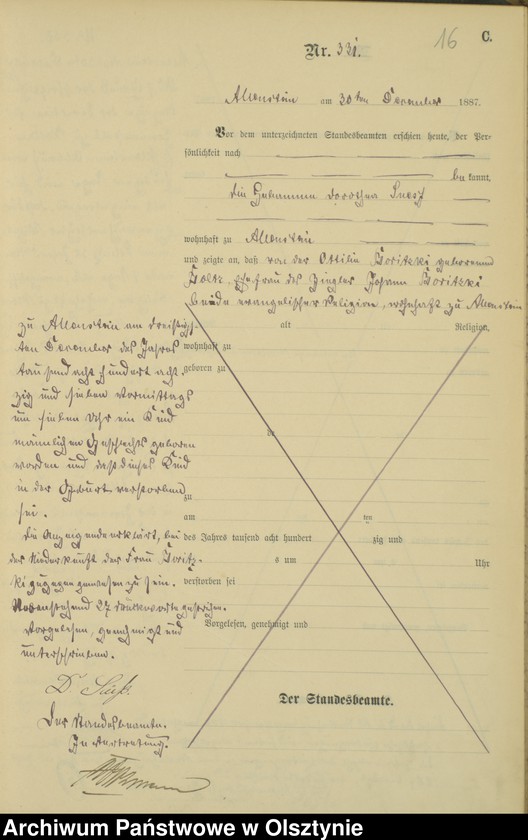 16 C.
Nr. 331.
Allenstein am 30ten Dezember 1887.
Vor dem unterzeichneten Standesbeamten erschien heute, der Per-
sönlichkeit nach
bekannt,
die Hebamme Dorothea
wohnhaft zu Allenstein
und zeigte an, daß von der Ottilie Goritzki geborenen
Ehefrau des Ziegler Johann Goritzki
beide evangelischer Religion, wohnhaft zu Allenstein
alt Religion,
wohnhaft zu
geboren zu
zu
am ten
des Jahres tausend acht hundert zig und
s um Uhr
verstorben sei
Vorgelesen, genehmigt und
Der Standesbeamte.
zu Allenstein am dreißig-
sten Dezember des Jahres
tausend acht hundert acht
zig und sieben Vormittags
um sieben Uhr ein Kind
männlichen Geschlechts geboren
worden und daß dieses Kind
in der Geburt verstorben
sei.
Die Anzeigende erklärt, bei
der Niederkunft der Frau Goritz-
ki zugegen gewesen zu sein.
Nebenstehend 27 Druckworte gestrichen.
Vorgelesen, genehmigt und
unterschrieben.
D
Der Standesbeamte.
In Vertretung.
Archiwum Państwowe w Olsztynie